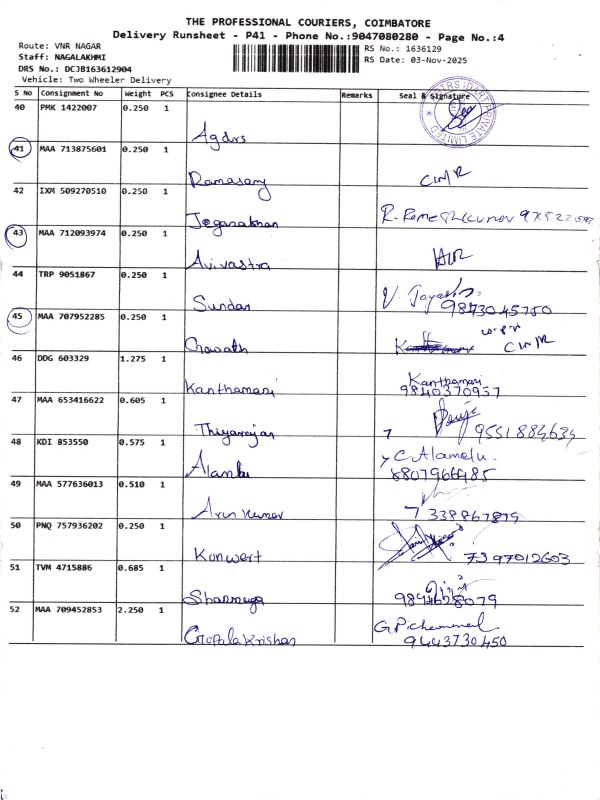 THE PROFESSIONAL COURIERS, COIMBATORE
Delivery Runsheet - P41 - Phone No.:9047080280 - Page No.:4
Route: VNR NAGAR
RS No.: 1636129
Staff: NAGALAKHMI
RS Date: 03-Nov-2025
DRS No.: DCJB163612904
Vehicle: Two Wheeler Delivery
S No Consignment No Weight PCS Consignee Details Remarks Seal & Signature
40 PMK 1422007 0.250 1
Agdrs
41 MAA 713875601 0.250 1
Ramasamy
42 IXM 509270510 0.250 1
Jegana
43 MAA 712093974 0.250 1
Avivastra
44 TRP 9051867 0.250 1
Sundar V. Jayash 9873045750
45 MAA 707952285 0.250 1
46 DDG 603329 1.275 1
Kanthamani Kanthamani 9840370957
47 MAA 653416622 0.605 1
Thiyagarajan 9551884634
48 KDI 853550 0.575 1
Alamelu C. Alamelu. 8807966485
49 MAA 577636013 0.510 1
Arun Kumar 7338867879
50 PNQ 757936202 0.250 1
Konwert 7397012603
51 TVM 4715886 0.685 1
Shanmuga 9894628079
52 MAA 709452853 2.250 1
Gopala Krishan G. Pichammal 9443730450